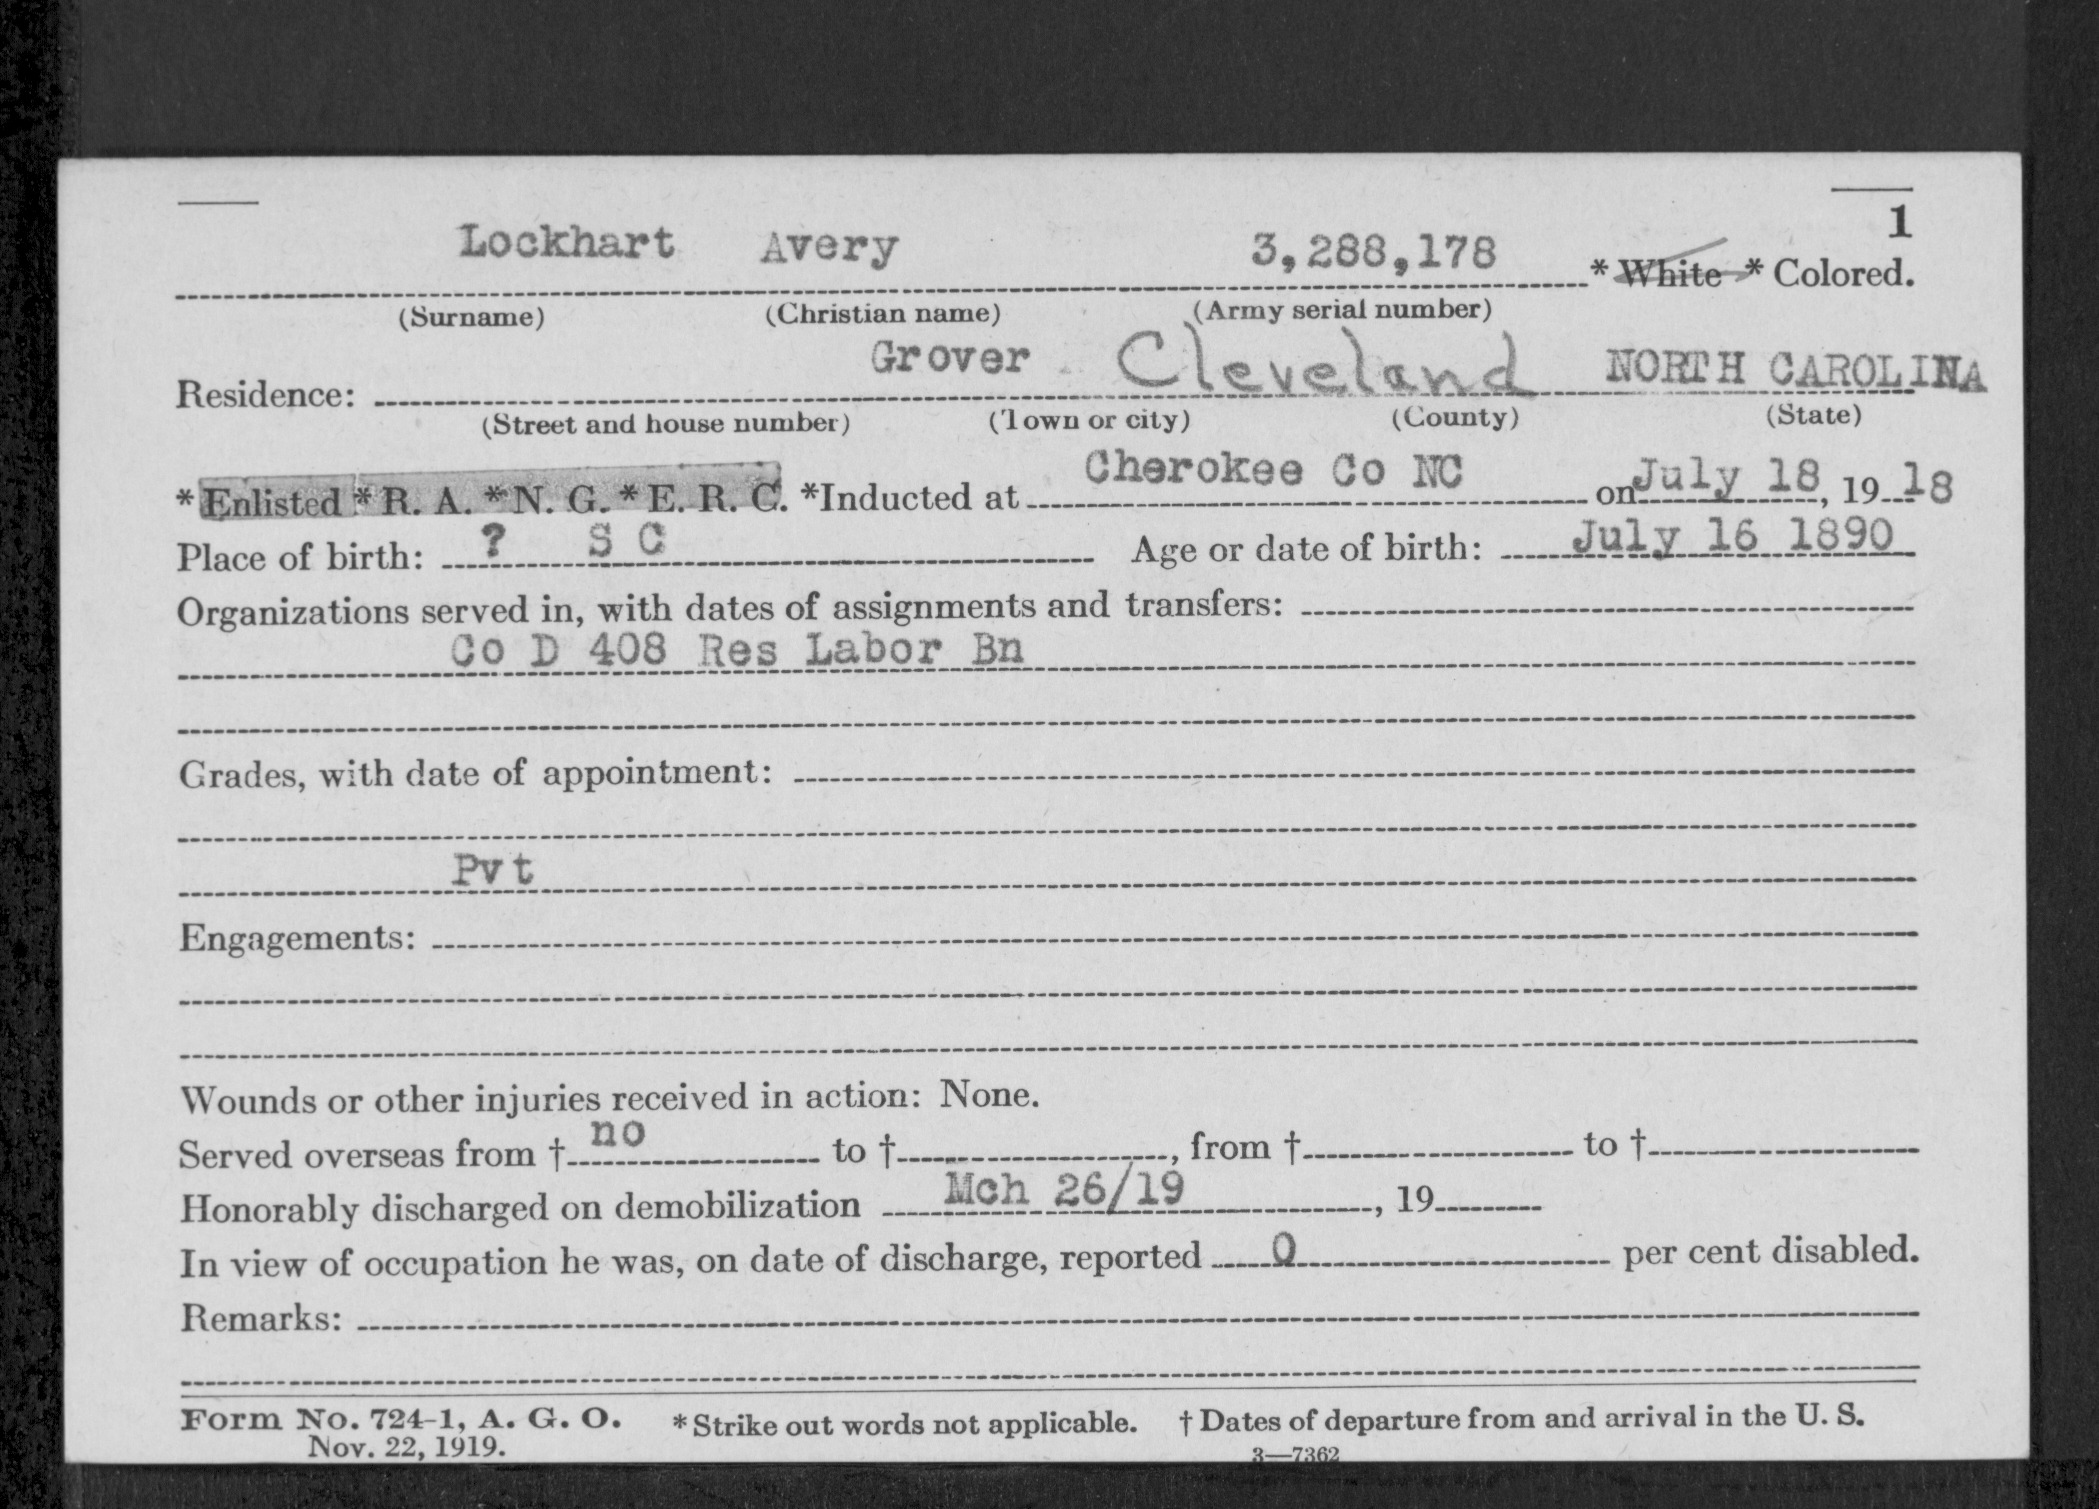 1
Lockhart Avery 3,288,178 * White * Colored.
(Surname) (Christian name) (Army serial number)
Grover Cleveland NORTH CAROLINA
Residence:
(Street and house number) (Town or city) (County) (State)
* Enlisted * R. A. * N. G. * E. R. C. *Inducted at Cherokee Co NC on July 18, 19 18
Place of birth: ? S C Age or date of birth: July 16 1890
Organizations served in, with dates of assignments and transfers:
Co D 408 Res Labor Bn
Grades, with date of appointment:
Pvt
Engagements:
Wounds or other injuries received in action: None.
Served overseas from † no to †, from † to †
Honorably discharged on demobilization Mch 26/19, 19
In view of occupation he was, on date of discharge, reported 0 per cent disabled.
Remarks:
Form No. 724-1, A. G. O. * Strike out words not applicable. † Dates of departure from and arrival in the U. S.
Nov. 22, 1919. 3—7362